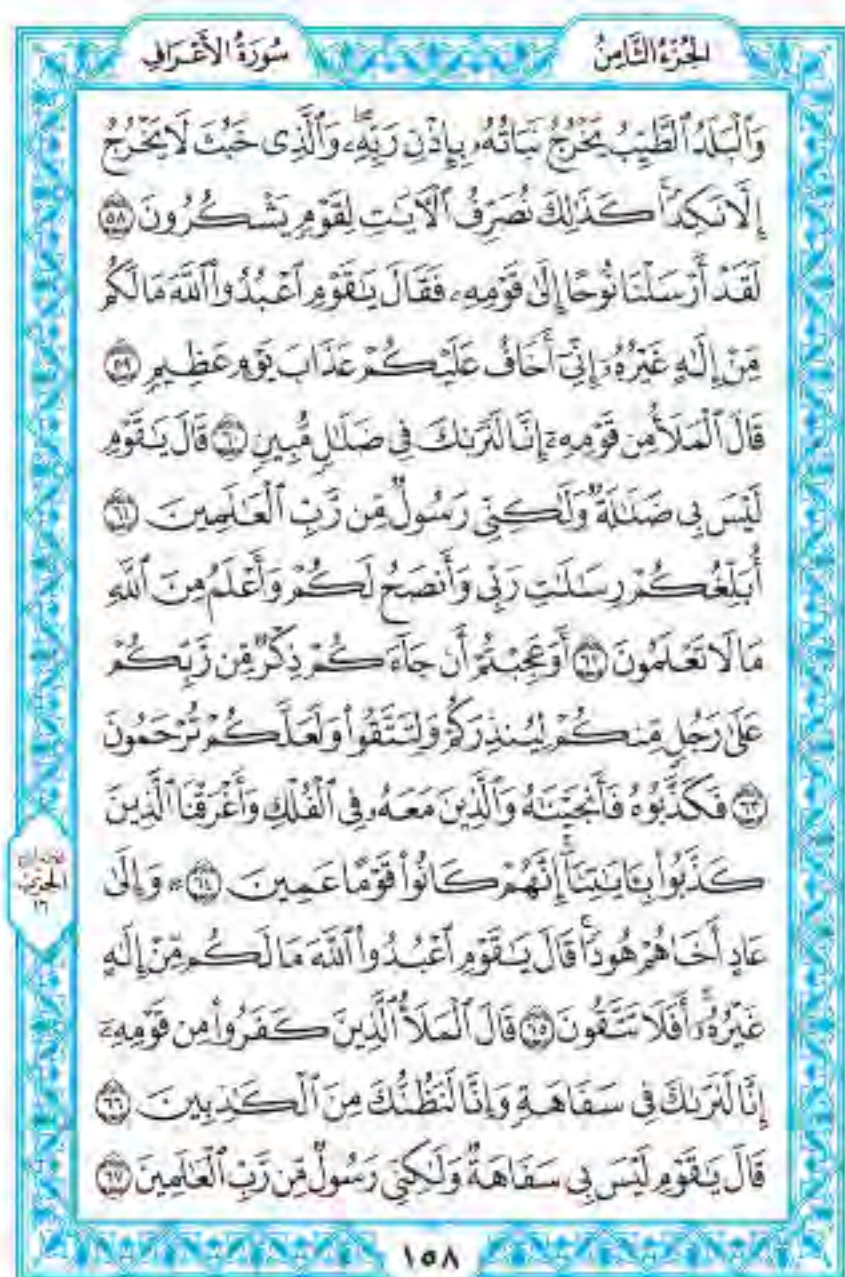 الجُزْءُ الثَّامِنُ
سُورَةُ الأَعْرَافِ
وَٱلْبَلَدُ ٱلطَّيِّبُ يَخْرُجُ نَبَاتُهُۥ بِإِذْنِ رَبِّهِۦۖ وَٱلَّذِى خَبُثَ لَا يَخْرُجُ
إِلَّا نَكِدًاۚ كَذَٰلِكَ نُصَرِّفُ ٱلْـَٔايَٰتِ لِقَوْمٍ يَشْكُرُونَ ٥٨
لَقَدْ أَرْسَلْنَا نُوحًا إِلَىٰ قَوْمِهِۦ فَقَالَ يَٰقَوْمِ ٱعْبُدُوا۟ ٱللَّهَ مَا لَكُم
مِّنْ إِلَٰهٍ غَيْرُهُۥٓ إِنِّىٓ أَخَافُ عَلَيْكُمْ عَذَابَ يَوْمٍ عَظِيمٍ ٥٩
قَالَ ٱلْمَلَأُ مِن قَوْمِهِۦٓ إِنَّا لَنَرَىٰكَ فِى ضَلَٰلٍ مُّبِينٍ ٦٠ قَالَ يَٰقَوْمِ
لَيْسَ بِى ضَلَٰلَةٌ وَلَٰكِنِّى رَسُولٌ مِّن رَّبِّ ٱلْعَٰلَمِينَ ٦١
أُبَلِّغُكُمْ رِسَٰلَٰتِ رَبِّى وَأَنصَحُ لَكُمْ وَأَعْلَمُ مِنَ ٱللَّهِ
مَا لَا تَعْلَمُونَ ٦٢ أَوَعَجِبْتُمْ أَن جَآءَكُمْ ذِكْرٌ مِّن رَّبِّكُمْ
عَلَىٰ رَجُلٍ مِّنكُمْ لِيُنذِرَكُمْ وَلِتَتَّقُوا۟ وَلَعَلَّكُمْ تُرْحَمُونَ
٦٣ فَكَذَّبُوهُ فَأَنجَيْنَٰهُ وَٱلَّذِينَ مَعَهُۥ فِى ٱلْفُلْكِ وَأَغْرَقْنَا ٱلَّذِينَ
كَذَّبُوا۟ بِـَٔايَٰتِنَآۚ إِنَّهُمْ كَانُوا۟ قَوْمًا عَمِينَ ٦٤ ۞ وَإِلَىٰ
عَادٍ أَخَاهُمْ هُودًاۗ قَالَ يَٰقَوْمِ ٱعْبُدُوا۟ ٱللَّهَ مَا لَكُم مِّنْ إِلَٰهٍ
غَيْرُهُۥٓۚ أَفَلَا تَتَّقُونَ ٦٥ قَالَ ٱلْمَلَأُ ٱلَّذِينَ كَفَرُوا۟ مِن قَوْمِهِۦٓ
إِنَّا لَنَرَىٰكَ فِى سَفَاهَةٍ وَإِنَّا لَنَظُنُّكَ مِنَ ٱلْكَٰذِبِينَ ٦٦
قَالَ يَٰقَوْمِ لَيْسَ بِى سَفَاهَةٌ وَلَٰكِنِّى رَسُولٌ مِّن رَّبِّ ٱلْعَٰلَمِينَ ٦٧
الحِزْب
١٦
١٥٨